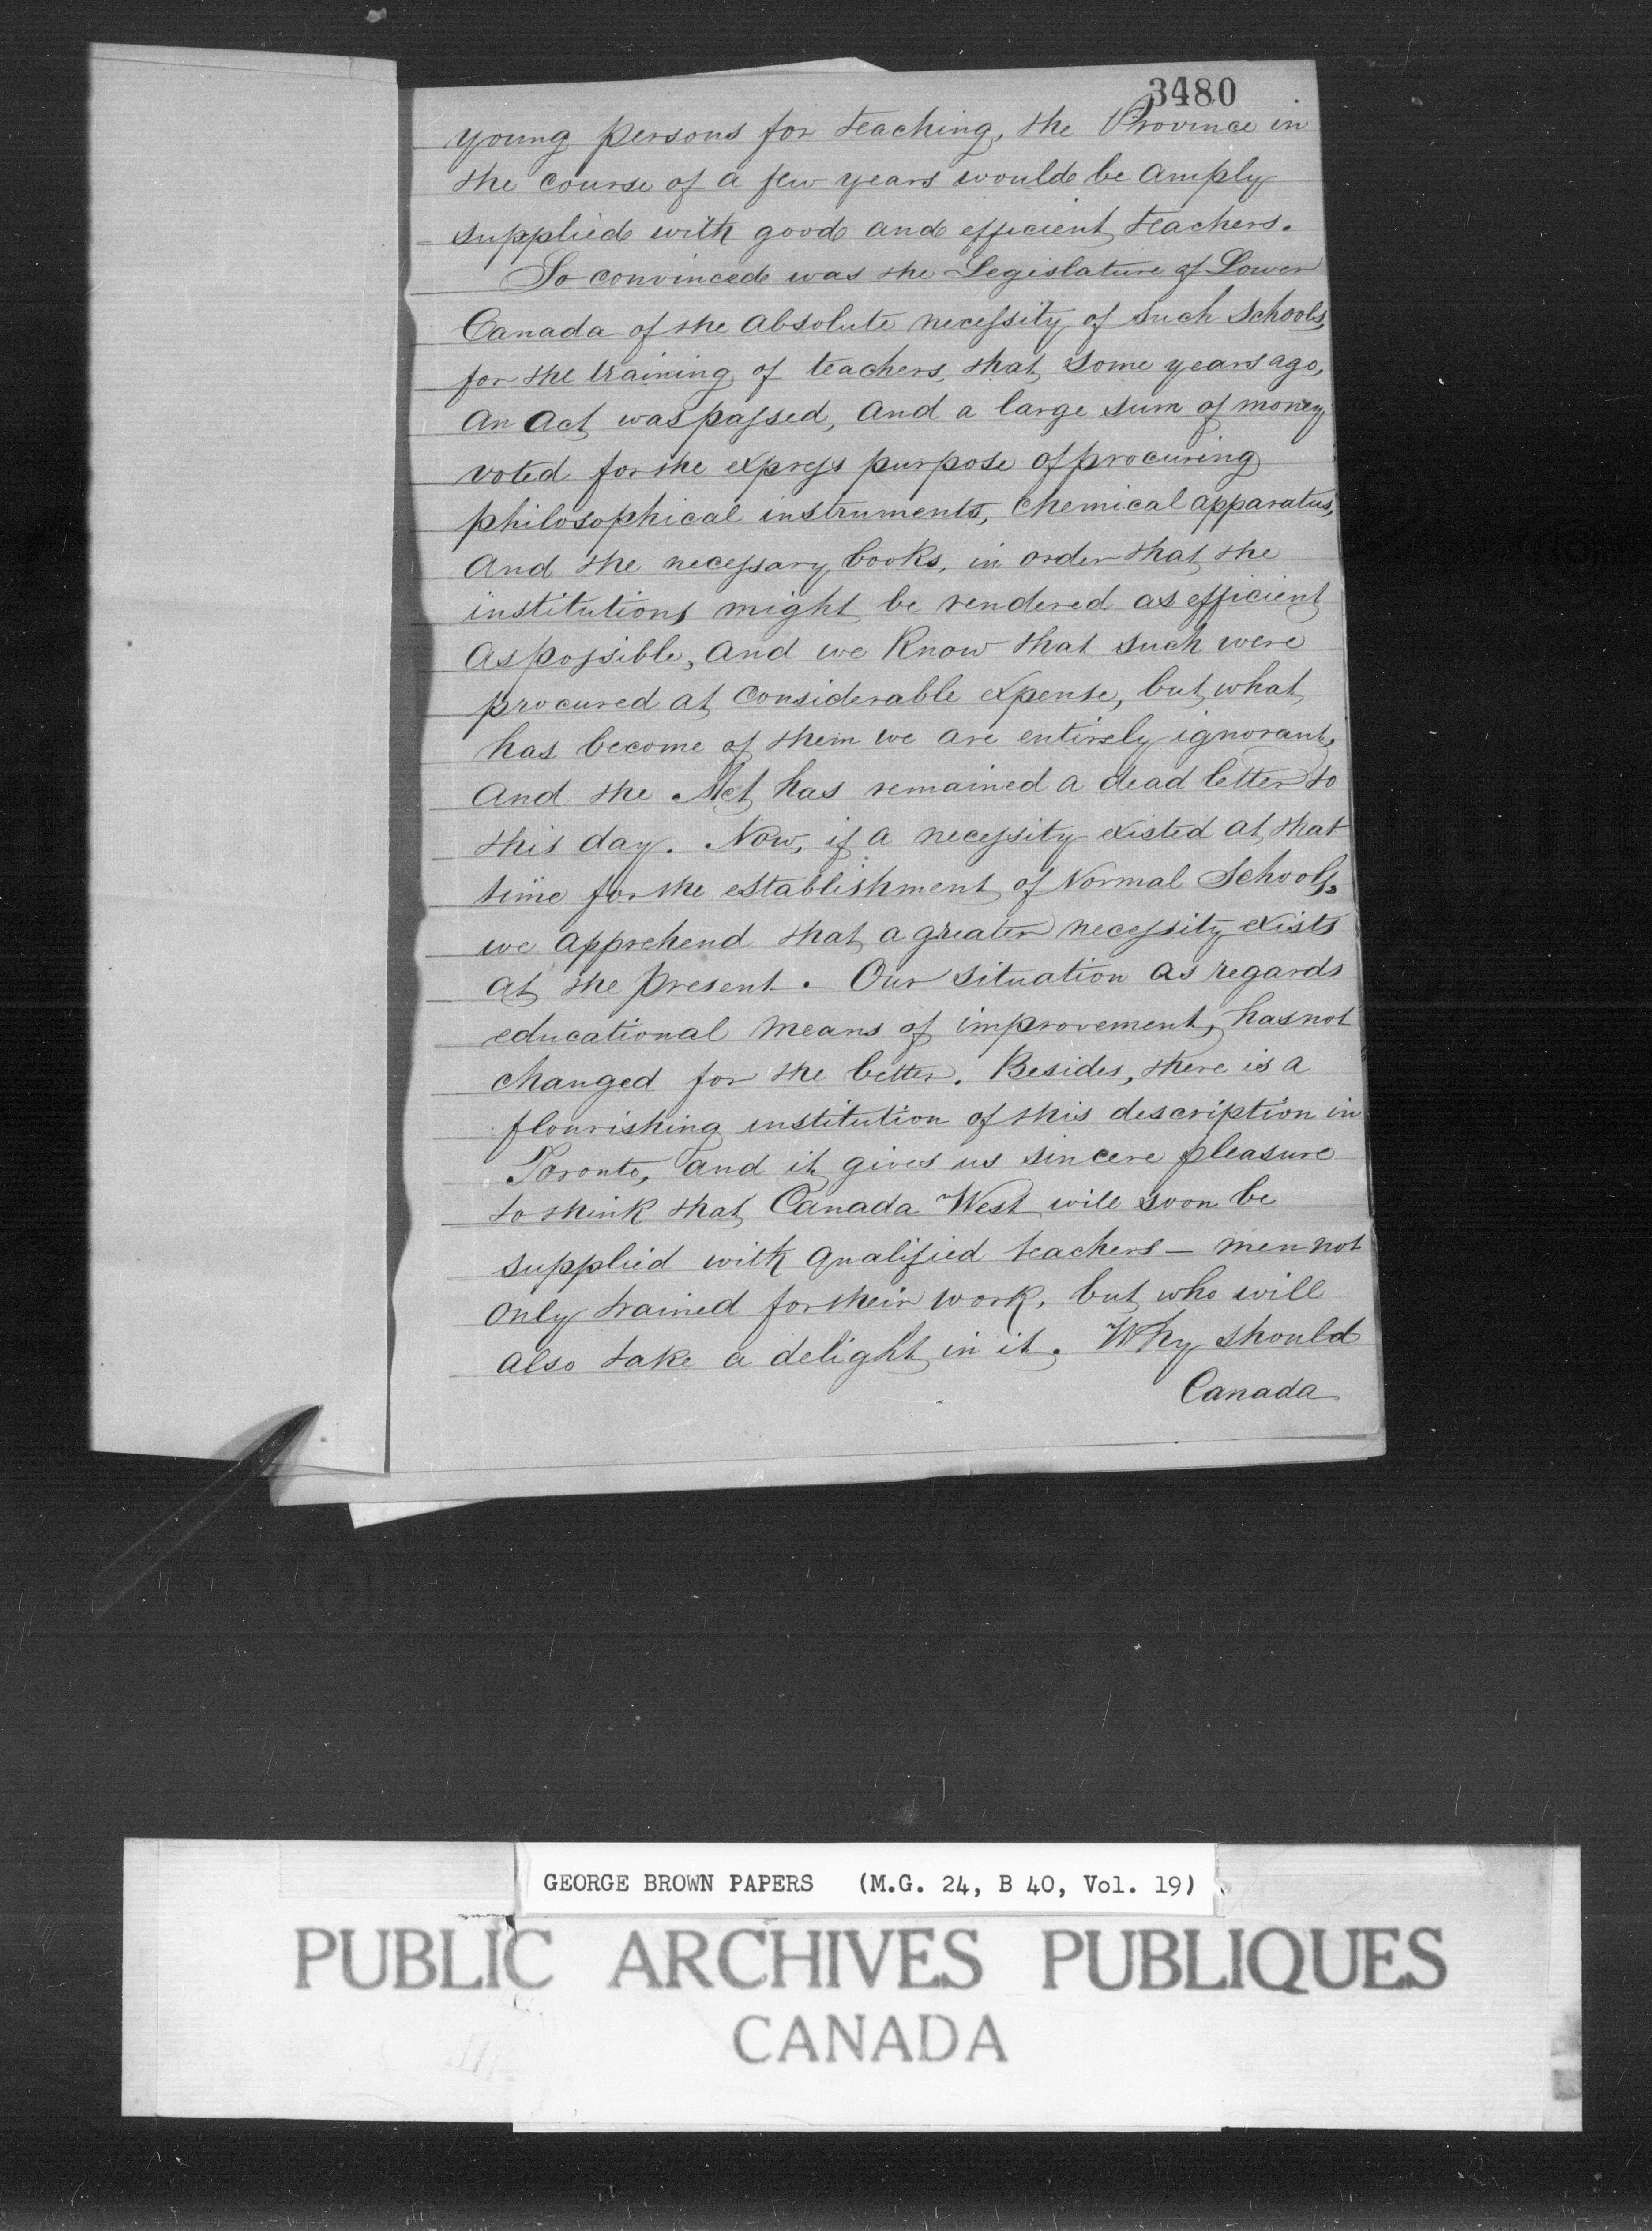 3480
young persons for teaching, the Province in
the course of a few years would be amply
supplied with good and efficient teachers.
So convinced was the Legislature of Lower
Canada of the absolute necessity of such Schools,
for the training of teachers, that, some years ago,
an Act was passed, and a large sum of money
voted for the express purpose of procuring
philosophical instruments, chemical apparatus,
and the necessary books, in order that the
institutions might be rendered as efficient
as possible, and we know that such were
procured at considerable expense, but what
has become of them we are entirely ignorant,
and the Act has remained a dead letter to
this day. Now, if a necessity existed at that
time for the establishment of Normal Schools,
we apprehend that a greater necessity exists
at the present. Our situation as regards
educational means of improvement, has not
changed for the better. Besides, there is a
flourishing institution of this description in
Toronto, and it gives us sincere pleasure
to think that Canada West will soon be
supplied with qualified teachers — men not
only trained for their work, but who will
also take a delight in it. Why should
Canada
GEORGE BROWN PAPERS (M.G. 24, B 40, Vol. 19)
PUBLIC ARCHIVES PUBLIQUES
CANADA